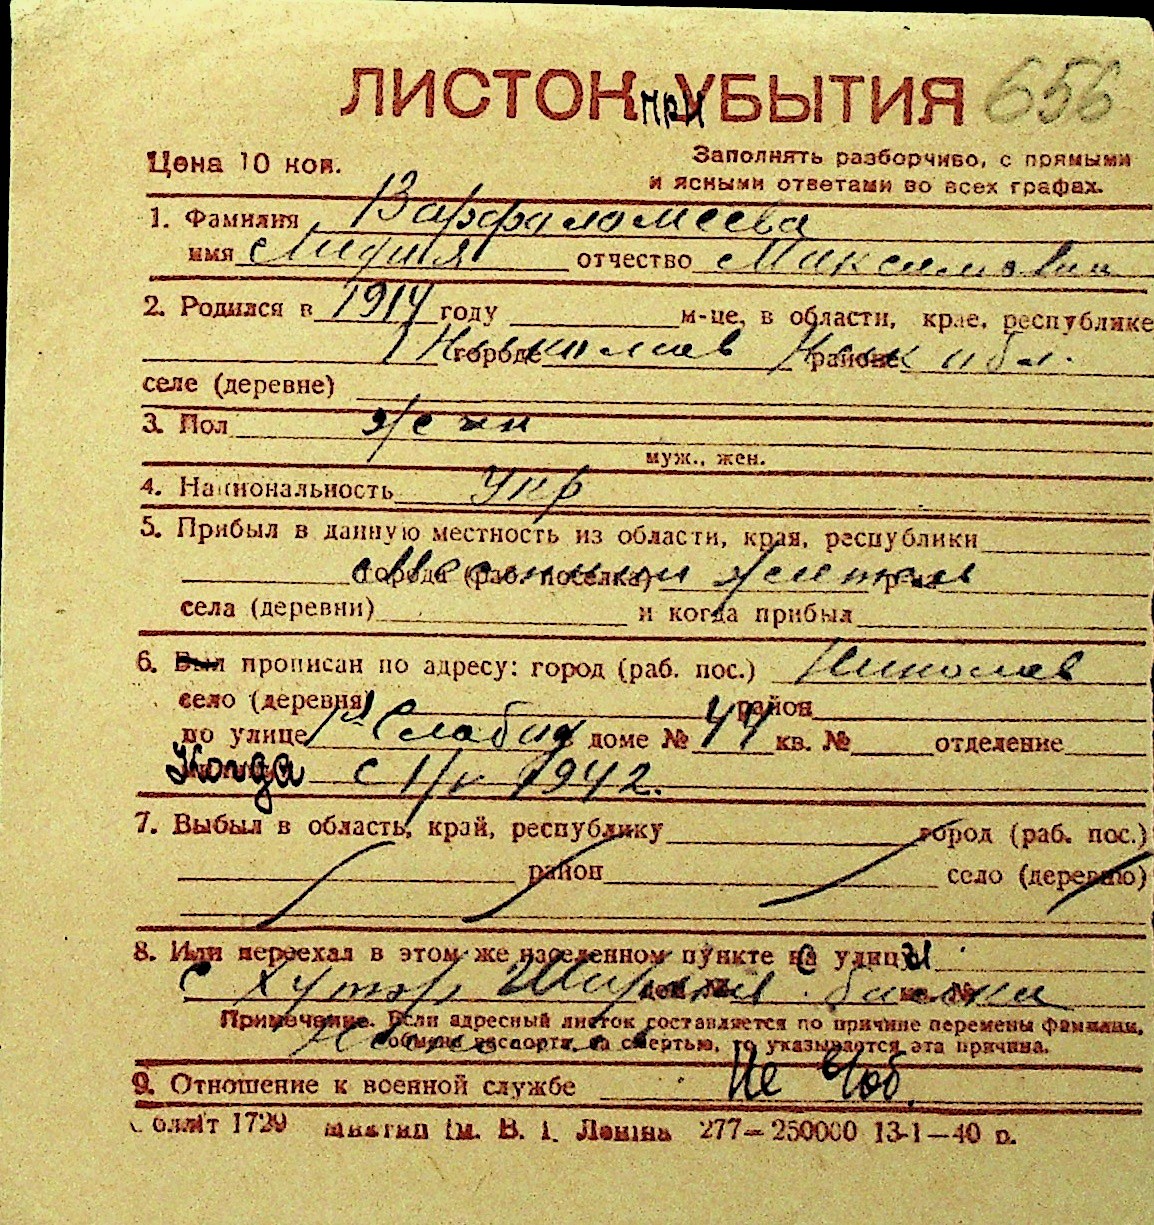 ЛИСТОК при УБЫТИЯ 656
Цена 10 коп.
Заполнять разборчиво, с прямыми
и ясными ответами во всех графах.
1. Фамилия Варфоломеева
имя Лидия отчество Максимовна
2. Родился в 1914 году м-це, в области, крае, республике
городе Николаев районе Ник обл.
селе (деревне)
3. Пол жен
муж., жен.
4. Национальность Укр
5. Прибыл в данную местность из области, края, республики
города (раб. поселка) Местный житель р-на
села (деревни) и когда прибыл
6. Был прописан по адресу: город (раб. пос.) Николаев
село (деревня) район
по улице Слобод доме № 44 кв. № отделение
Когда с 1/V 1942.
7. Выбыл в область, край, республику город (раб. пос.)
район село (деревню)
8. Или переехал в этом же населенном пункте с улицы
с Хутор Широкая балка дом № кв. №
Примечание. Если адресный листок составляется по причине перемены фамилии,
обмена паспорта, за смертью, то указывается эта причина.
9. Отношение к военной службе Не воб.
1729 ім. В. І. Леніна 277—250000 13-1—40 р.